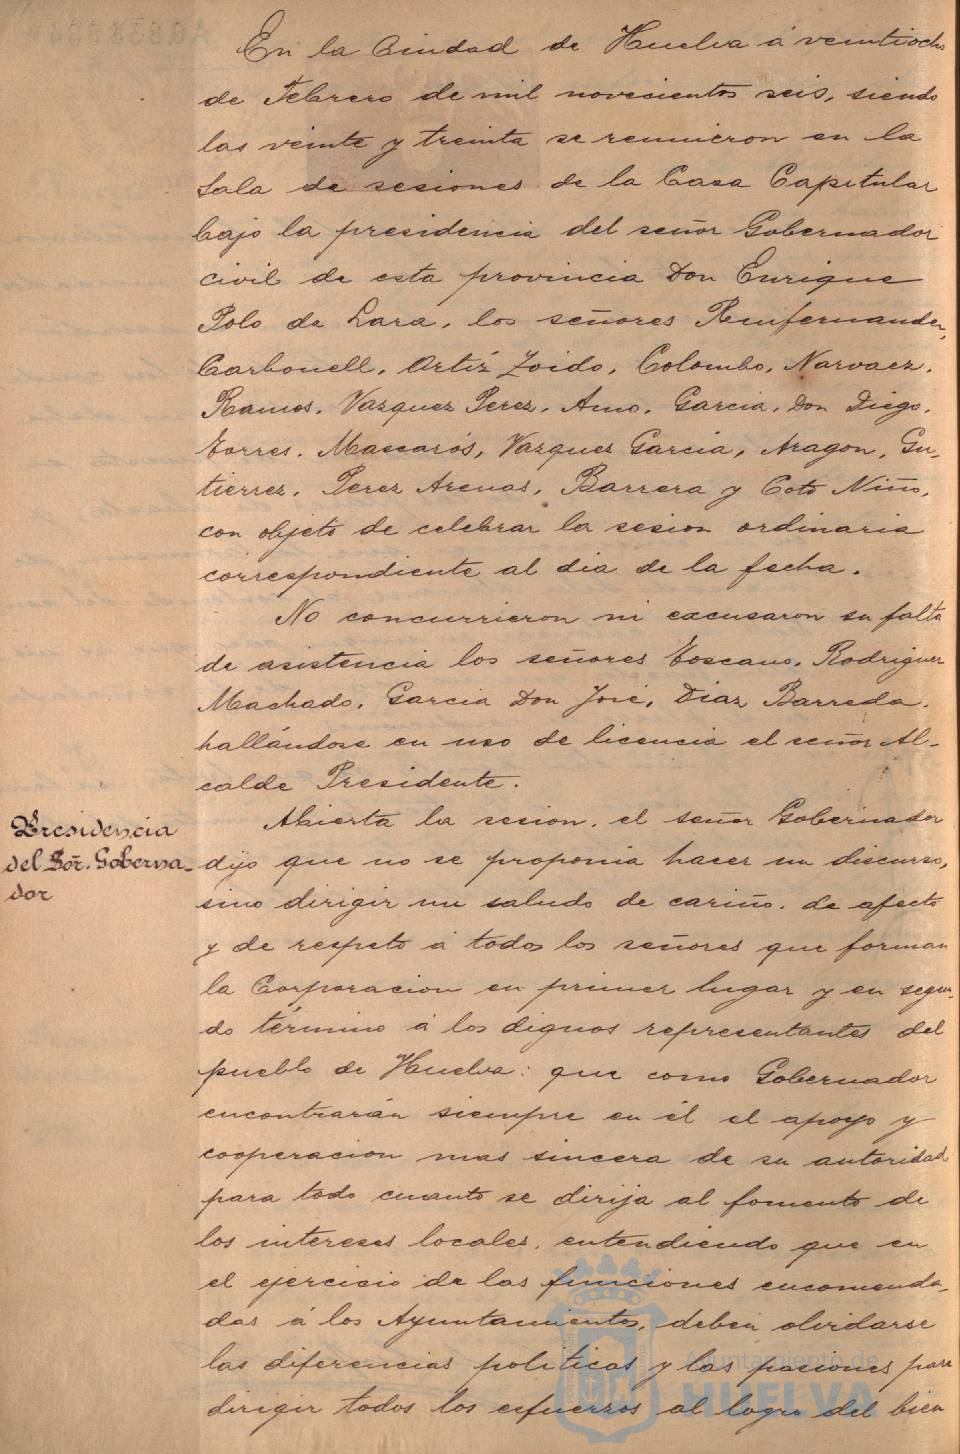 En la Ciudad de Huelva á veintiocho
de Febrero de mil novecientos seis, siendo
las veinte y treinta se reunieron en la
Sala de sesiones de la Casa Capitular
bajo la presidencia del señor Gobernador
civil de esta provincia Don Enrique
Polo de Lara, los señores Ruifernandez,
Carbonell, Ortíz Zoido, Colombo, Narvaez,
Ramos, Vazquez Perez, Amo, Garcia, Don Diego,
Torres, Mascarós, Vazquez Garcia, Aragon, Gu-
tierrez, Perez Arenas, Barrera y Coto Niño,
con objeto de celebrar la sesion ordinaria
correspondiente al dia de la fecha.
No concurrieron ni excusaron su falta
de asistencia los señores Toscano, Rodriguez
Machado, Garcia Don José, Diaz Barreda,
hallándose en uso de licencia el señor Al-
calde Presidente.
Presidencia
del Sor. Goberna-
dor
Abierta la sesion, el señor Gobernador
dijo que no se proponia hacer un discurso,
sino dirigir un saludo de cariño, de afecto
y de respeto á todos los señores que forman
la Corporacion en primer lugar y en segun-
do término á los dignos representantes del
pueblo de Huelva: que como Gobernador
encontrarán siempre en él el apoyo y
cooperacion mas sincera de su autoridad
para todo cuanto se dirija al fomento de
los intereses locales, entendiendo que en
el ejercicio de las funciones encomenda-
das á los Ayuntamientos, deben olvidarse
las diferencias politicas y las pasiones para
dirigir todos los esfuerzos al logro del bien
Ayuntamiento de
HUELVA